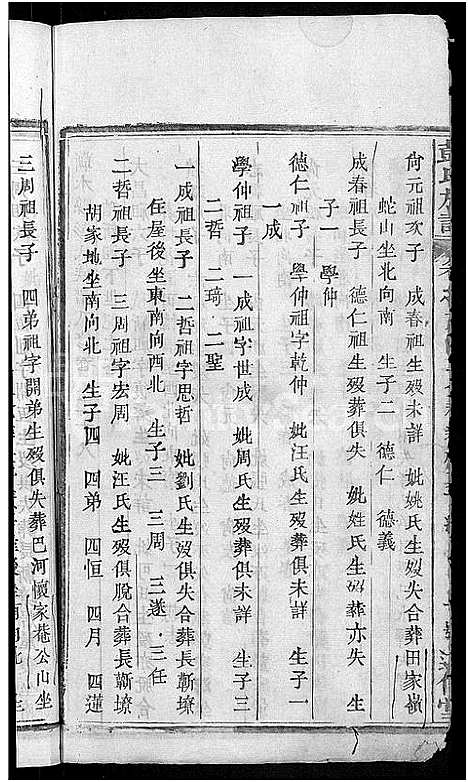 彭氏族譜
尙元祖次子 成春祖生歿未詳 妣姚氏生歿失合葬田家嶺
蛇山坐北向南 生子二 德仁 德義
成春祖長子 德仁祖生歿葬俱失 妣姓氏生歿葬亦失
子一 學仲
德仁祖子 學仲祖字乾仲 妣汪氏生歿葬俱未詳 生子一
一成
學仲祖子 一成祖字世成 妣周氏生歿葬俱未詳 生子三
二哲 二琦 二聖
一成祖長子 二哲祖字思哲 妣劉氏生歿俱失合葬長蔪㙩
住屋後坐東南向西北 生子三 三周 三遂 三任
二哲祖長子 三周祖字宏周 妣汪氏生歿俱脫合葬長蔪㙩
胡家地坐南向北 生子四 四弟 四恒 四月 四蓮
三周祖長子 四弟祖字開弟生歿俱失葬巴河懷家菴公山坐